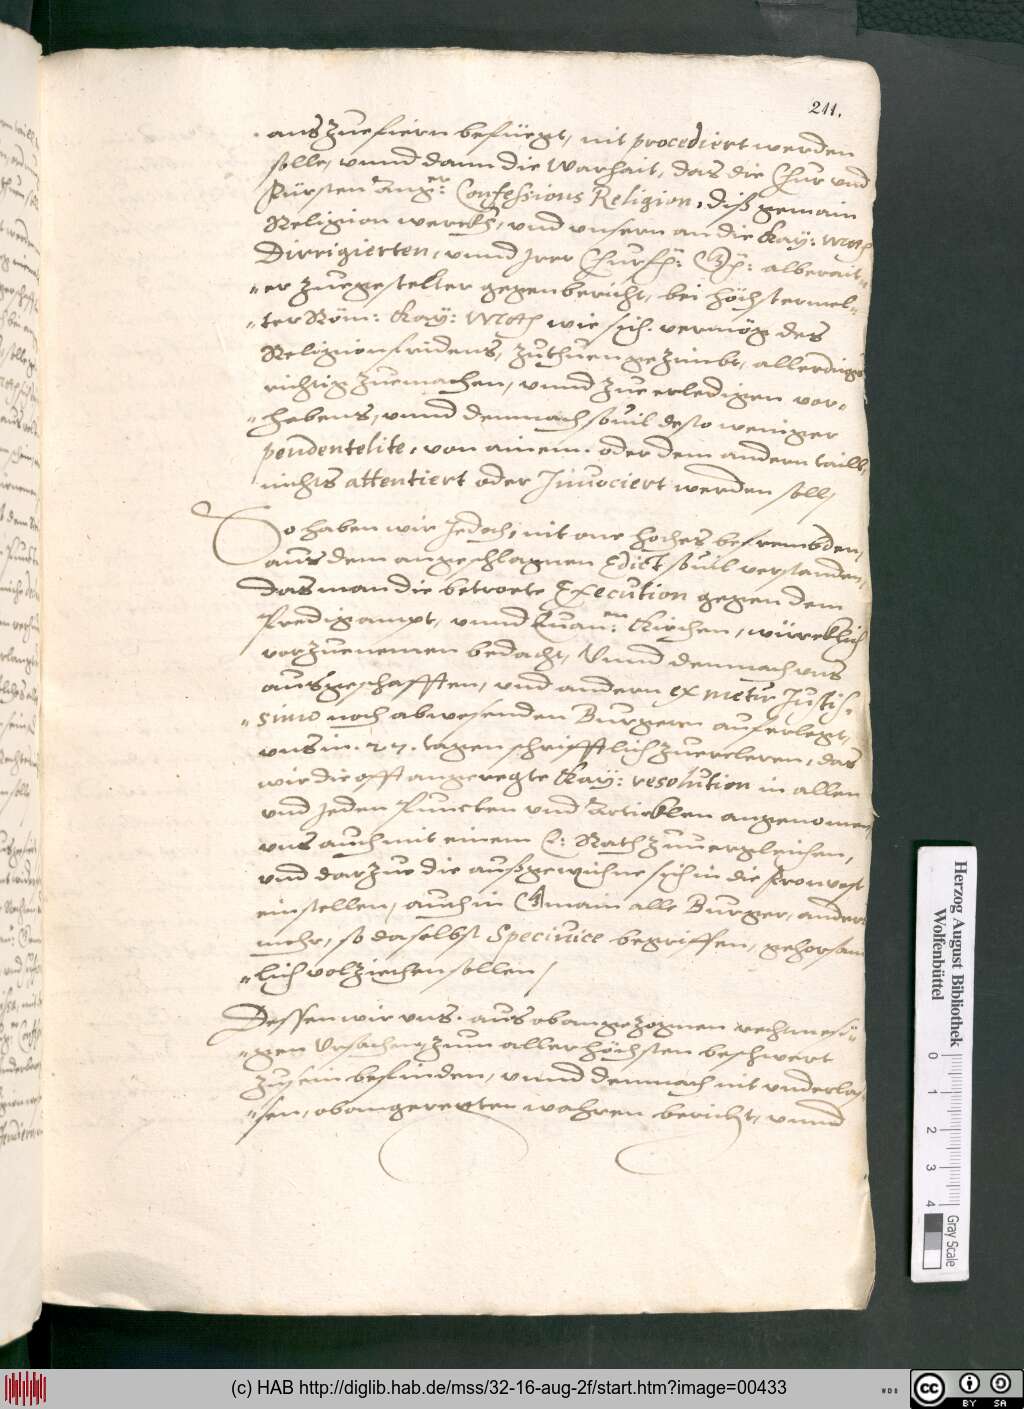 211.
auszuefiern befüegt, nit procediert werden
solle, vnnd dann die Warhait, das die Chur vnd
Fürsten Aug:er Confessions Religion, diß gemain
Religion werckh, vnd vnsern an die Kay: Mtt
Dirrigierten, vnnd Irer Churf: G: alberait
er zuegestelter gegenbericht, bei höchstermel-
ter Röm: Kay: Mtt wie sich vermög des
Religionsfridens, zuthuen gezimbt, allerdings
richtig zuemachen, vnnd zue erledigen vor-
habens, vnnd demnach souil desto weniger
pendente lite, von ainem oder dem andern taill,
nichts attentiert oder Innouiert werden soll,
So haben wir Jedoch, mit one hoches befrembden,
aus dem angeschlagnen Edict souil verstanden,
Das man die betroete Execution gegen dem
Predigampt, vnnd Euan:en Kirchen, würcklich
vorzuenemen bedacht, Vnnd demnach vns
ausgeschafften, vnd andern ex metu Justis-
simo noch abwesenden Burgern auferlegt,
vns in 27. tagen schrifftlich zuercleren, das
wir die offtangeregte Kay: resolution in allen
vnd Jeden Puncten vnd Articklen angenomen,
vns auch mit einem E: Rath zuuergleichen,
vnd darzue die außgewichne sich in die
einstellen, auch in Gmain alle Burger, ander
mehr, so daselbst Speciuice begriffen, gehorsam
lich volziechen sollen,
Dessen wir vns aus obangezognen rechmesi-
gen Vrsachen zum allerhöchsten beschwert
zusein befinden, vnnd demnach nit vnderlas-
sen, obangeregten wahren bericht, vnnd
Herzog August Bibliothek
Wolfenbüttel
0 1 2 3 4
Gray Scale
(c) HAB http://diglib.hab.de/mss/32-16-aug-2f/start.htm?image=00433
WDB
cc BY SA